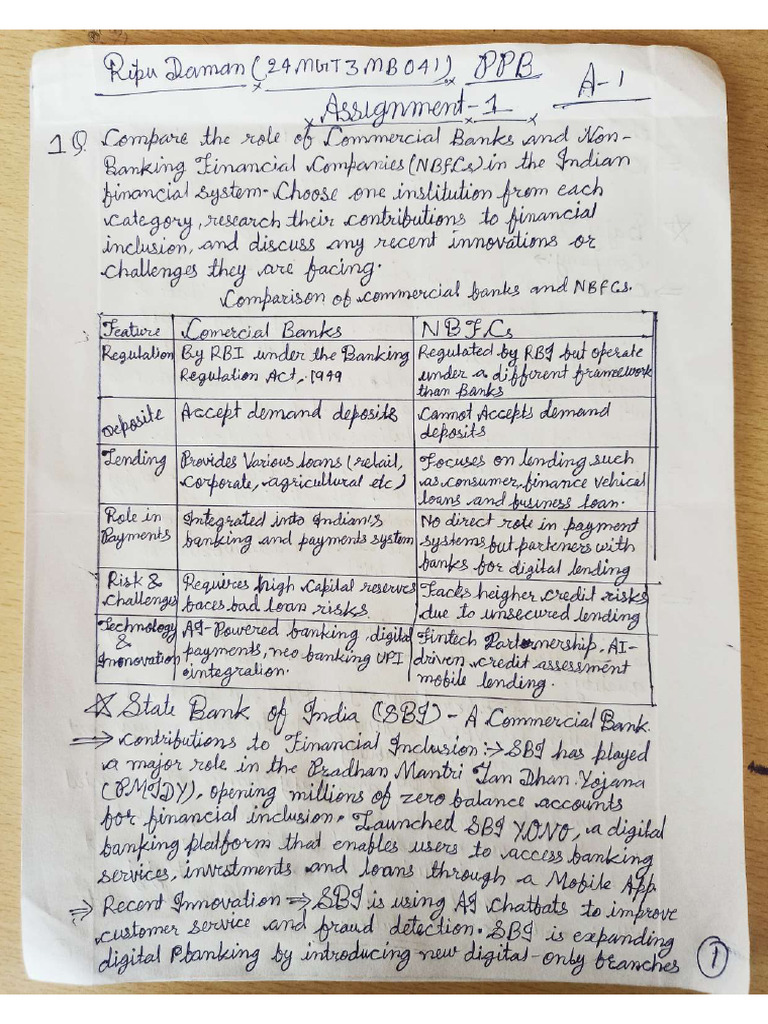 Ripu Daman (24MGT3MB041) PPB
A-1
Assignment-1
1Q. Compare the role of Commercial Banks and Non-
Banking Financial Companies (NBFCs) in the Indian
financial system. Choose one institution from each
category, research their contributions to financial
inclusion, and discuss any recent innovations or
challenges they are facing.
Comparison of commercial banks and NBFCs.
Feature Comercial Banks NBFCs
Regulation By RBI under the Banking Regulated by RBI but operate
Regulation Act, 1949 under a different framework
than Banks
Deposite Accept demand deposits Cannot Accepts demand
deposits
Lending Provides Various loans (retail, Focuses on lending such
corporate, agricultural etc) as consumer, finance vehical
loans and business loan.
Role in Integrated into Indian's No direct role in payment
Payments banking and payments system systems but parteners with
banks for digital lending
Risk & Requires high capital reserves Facks heigher credit risks
Challenges baces bad loan risks. due to unsecured lending
Technology AI-Powered banking digital Fintech Partnership, AI-
& payments, neo banking UPI driven credit assessment
Innonovation integration. mobile lending.
State Bank of India (SBI) - A Commercial Bank.
⇒ Contributions to Financial Inclusion :→ SBI has played
a major role in the Pradhan Mantri Jan Dhan Yojana
(PMJDY), opening millions of zero balance accounts
for financial inclusion. Launched SBI YONO, a digital
banking platform that enables users to access banking
services, investments and loans through a Mobile App.
⇒ Recent Innovation ⇒ SBI is using AI chatbats to improve
customer service and fraud detection. SBI is expanding
digital banking by introducing new digital-only branches
1